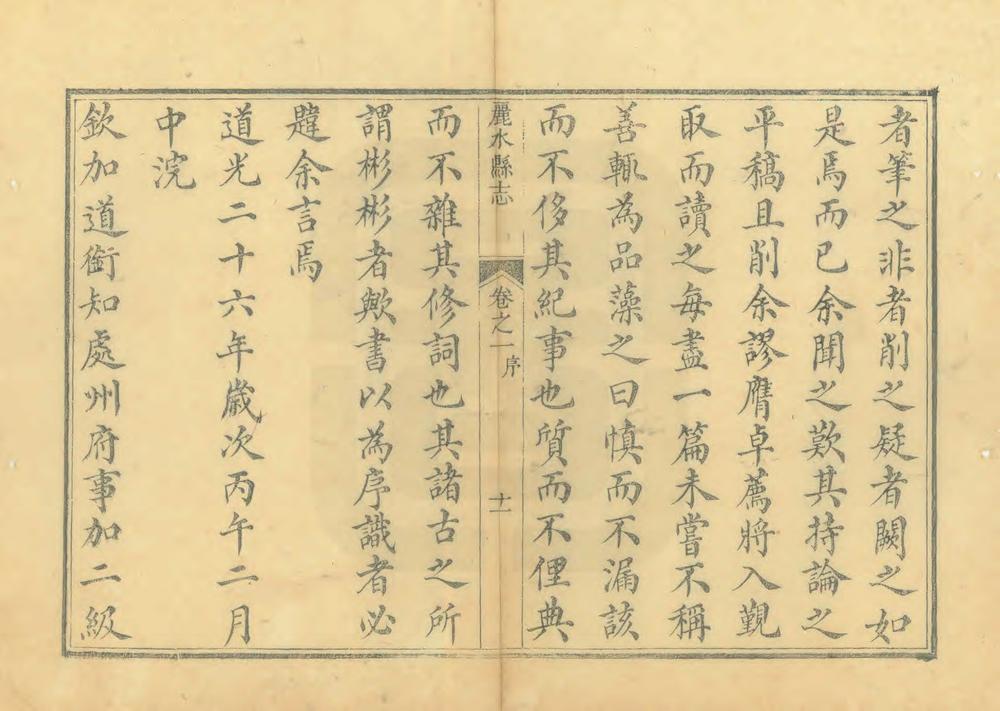 者筆之非者削之疑者闕之如
是焉而已余聞之歎其持論之
平稿且削余謬膺卓薦將入覲
取而讀之每盡一篇未嘗不稱
善輒為品藻之曰慎而不漏該
而不侈其紀事也質而不俚典
麗水縣志
卷之一
序
十一
而不雜其修詞也其諸古之所
謂彬彬者歟書以為序識者必
韙余言焉
道光二十六年歲次丙午二月
中浣
欽加道銜知處州府事加二級